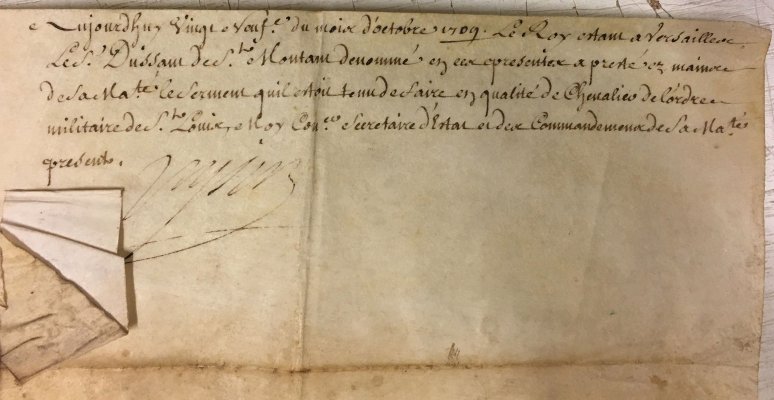 Aujourdhuy Vingt e Neufe. du moix d'octobre 1709. Le Roy estant a Versailles
Le Sr. Dussan de Ste Montam denommé en ces presentes a presté ez mains
de sa Maté le serment quil estoit tenu de faire en qualité de Chevalier de l'ordre
militaire de St. Louis, Moy Coner. secretaire d'Estat et des Commandemens de sa Maté
present.